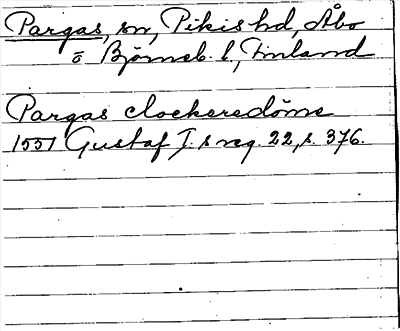 Pargas, sn, Pikis hd, Åbo
o Björneb. l, Finland
Pargas clockeredöme
1551 Gustaf I. s reg. 22, s. 376.